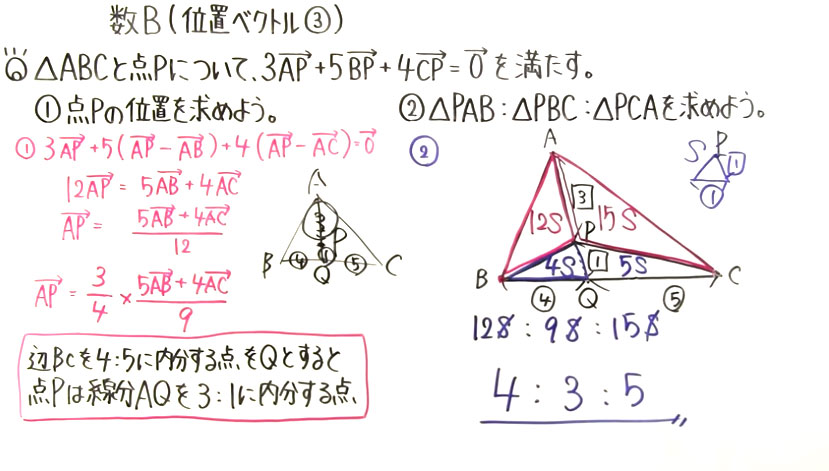 数B(位置ベクトル③)
Q △ABCと点Pについて、3AP→+5BP→+4CP→=0→を満たす。
①点Pの位置を求めよう。
②△PAB:△PBC:△PCAを求めよう。
① 3AP→+5(AP→-AB→)+4(AP→-AC→)=0→
12AP→=5AB→+4AC→
AP→=(5AB→+4AC→)/12
AP→=3/4×(5AB→+4AC→)/9
A
③
P
①
B ④ Q ⑤ C
辺BCを4:5に内分する点をQとすると
点Pは線分AQを3:1に内分する点
②
A
3
12S 15S
P
4S 1 5S
B C
④ Q ⑤
P
S 1
①
12S:9S:15S
4:3:5